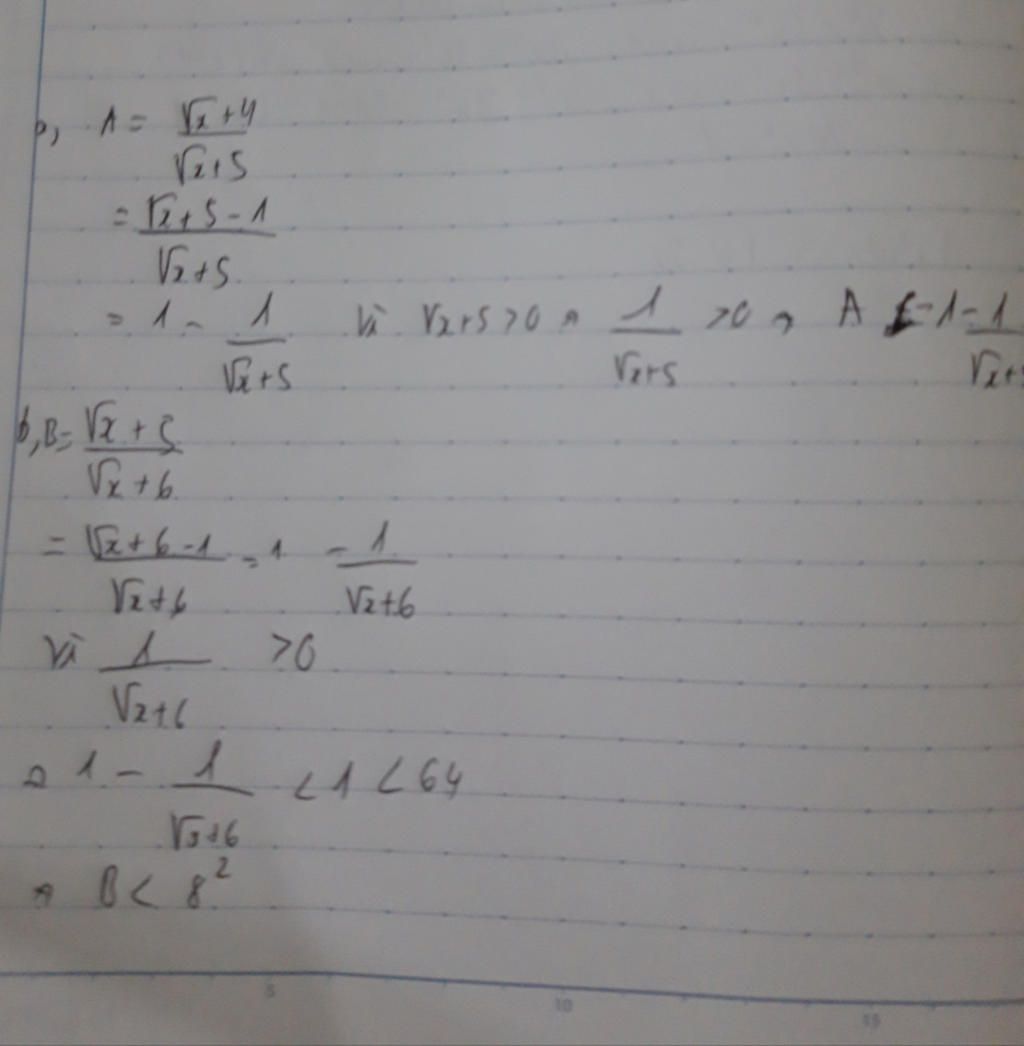 A = (√x + 4)/(√x + 5)
= (√x + 5 - 1)/(√x + 5)
= 1 - 1/(√x + 5) Vì √x + 5 > 0 ⇒ 1/(√x + 5) > 0 ⇒ A = 1 - 1/(√x +
b, B = (√x + 5)/(√x + 6)
= (√x + 6 - 1)/(√x + 6) = 1 - 1/(√x + 6)
Vì 1/(√x + 6) > 0
⇒ 1 - 1/(√x + 6) < 1 < 64
⇒ B < 8²
5 10 15